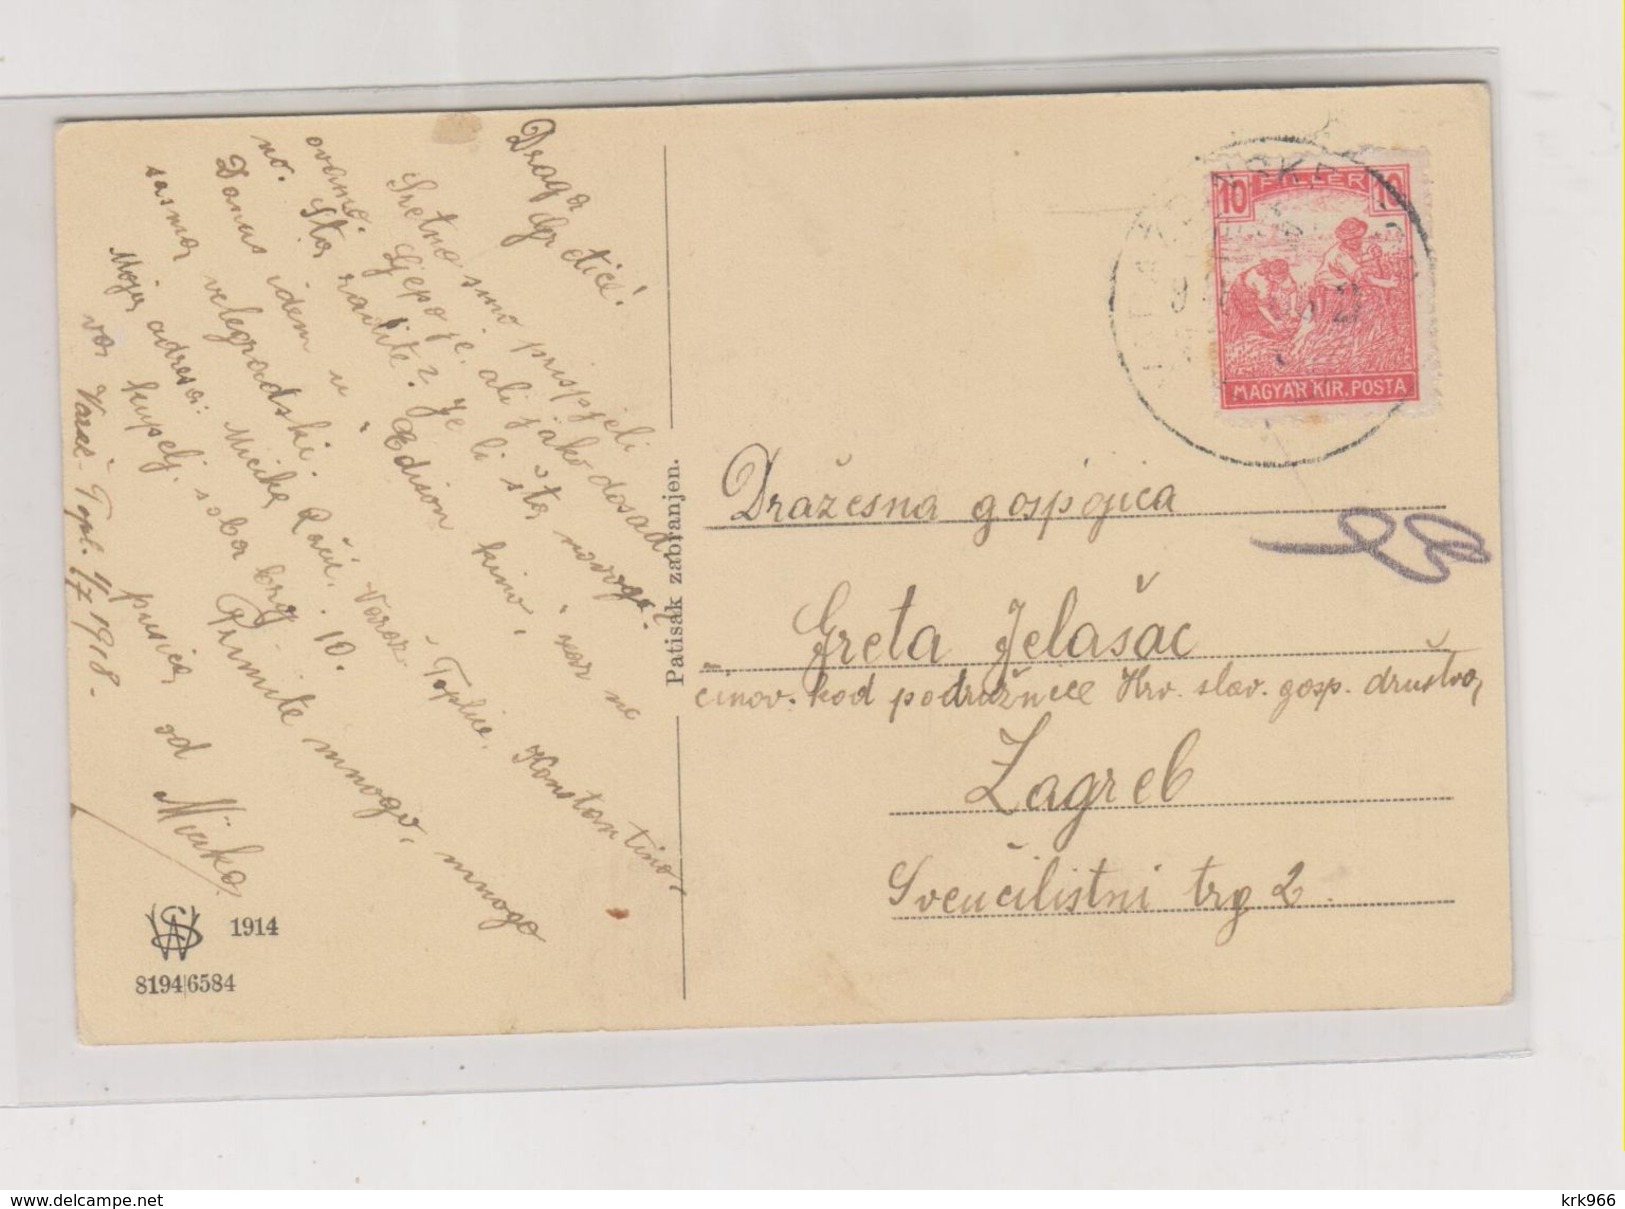 Draga
Gretice!
Sretno smo prispjeli
ovamo. Ljepo je, ali jako dosad-
no. Šta radite? Je li šta novoga?
Danas idem u "Edison kino", zar ne
sasma velegradski.
Moja adresa: Micika Račić. Varaž. Toplice. Konstantino-
va kupelj. soba broj 10.
Primite mnogo, mnogo
pusica od Micike
Varaž-Topl. 1/7 1918.
1914
8194/6584
Patisak zabranjen.
10 FILLÉR 10
MAGYAR KIR. POSTA
Dražesna gospojica
Greta Jelašac
činov. kod podružnice Hrv. slav. gosp. društva,
Zagreb
Sveučilistni trg 2.
www.delcampe.net
krk966